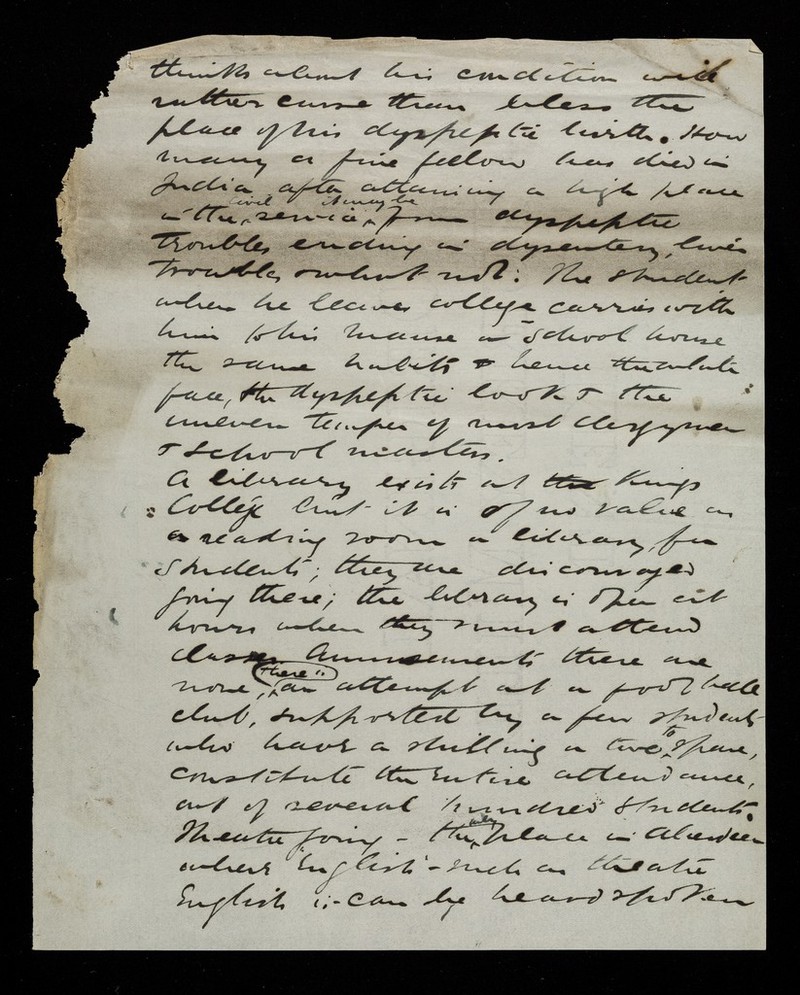 thinks about his condition will
rather curse than bless the
place of his dyspeptic birth. How
many a fine fellow has died in
India after attaining a high place
civil it may be
in the service, from dyspeptic
troubles ending in dysentery, liver
troubles & what not: The student
when he leaves college carries with
him to his manse or School house
the same habits & hence the white
face, the dyspeptic look & the
uneven temper of most clergymen
& School masters.
A library exists at the Kings
College but it is of no value as
a reading room or library for
Students; they are discouraged
going there; the library is open at
hours when they must attend
classes. Amusements there are
there is
none, an attempt at a foot ball
club, supported by a few students
to
who have a shilling or two spare,
constitute the entire attendance,
out of several hundred Students.
only
Theatre going - the place in Aberdeen
where English - such as theatre
English is - can be heard spoken